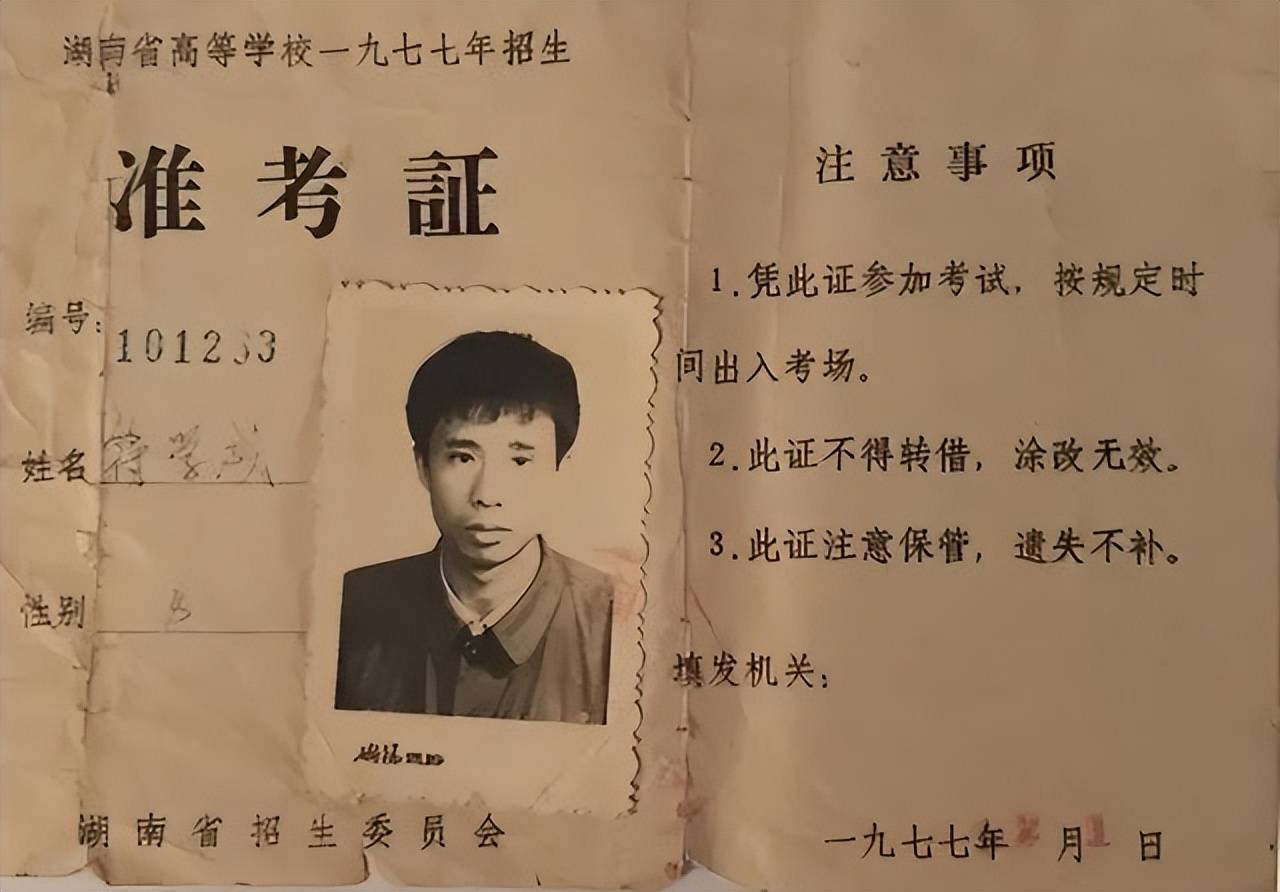 湖南省高等学校一九七七年招生
准考証
编号:
1012 3
姓名 学
性别
湖南省招生委员会
注意事项
1.凭此证参加考试，按规定时
间出入考场。
2.此证不得转借，涂改无效。
3.此证注意保管，遗失不补。
填发机关：
一九七七年 月1日